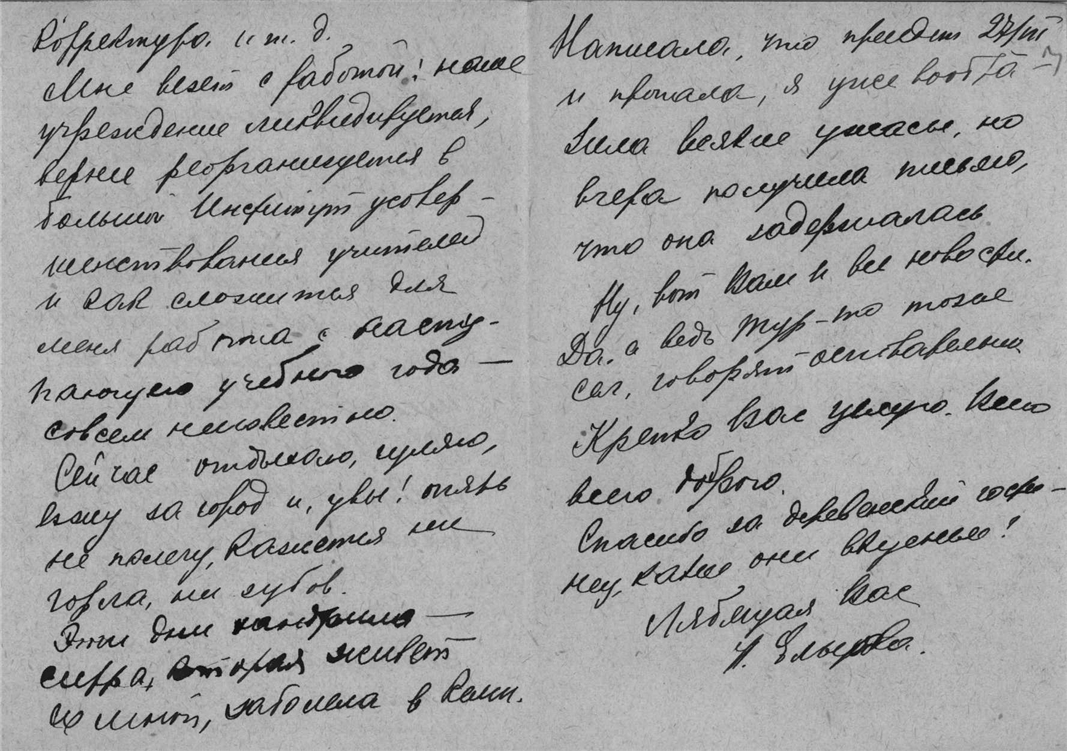 Корректура. и т. д.
Мне везет с работой! наше
учреждение ликвидируется,
верней реорганизуется в
большой Институт усовер-
шенствования учителей
и как сложится для
меня работа с насту-
пающего учебного года —
совсем неизвестно.
Сейчас отдыхаю, гуляю,
езжу за город и, увы! опять
не полечу, кажется ни
горла, ни зубов.
Эти дни хандрила —
сестра, которая живет
со мной, заболела в Ленин.
Написала, что приедет 27/VII
и пропала, я уже вообра-
зила всякие ужасы, но
вчера получила письмо,
что она задержалась
Ну, вот Вам и все новости.
Да, а ведь Тур-то тоже
сел, говорят основательно
Крепко Вас целую. Всего
всего доброго.
Спасибо за деревенский гости-
нец, какие они вкусные!
Любящая Вас